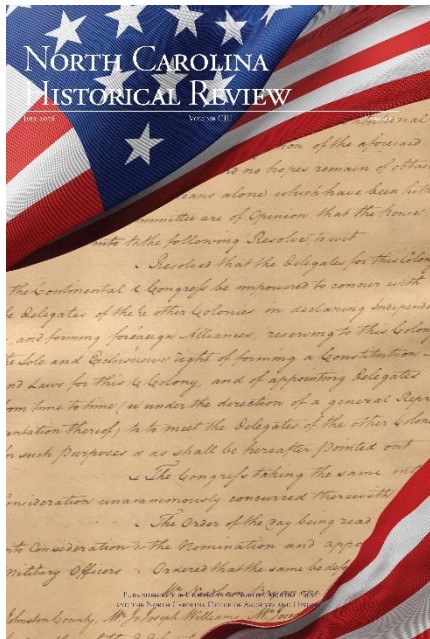 NORTH CAROLINA
HISTORICAL REVIEW
VOLUME CIII
on of the aforesaid
no hopes remain of obtai
eans alone which have been
mmittee are of Opinion that the house
into take following Resolve, to wit
Resolved that the Delegates for this Colon
the Continental Congress be impowered to concur with
Delegates of the other Colonies in declaring Independ
and forming foreign Alliances, reserving to this Colony
Sole and Exclusive right of forming a Constitution
nd Laws for this Colony, and of appointing Delegates
om time to time (under the direction of a general Repr
entation thereof) to meet the Delegates of the other Colon
r such purposes as shall be hereafter pointed out
The Congress taking the same int
nsideration unanimously concurred therewith
The Order of the Day being read
to Consideration the Nomination and appo
military Officers Ordered that the same be def
AND THE NORTH CAROLINA OFFICE OF ARCHIVES AND HISTORY
Johnston County, Mr Joseph Williams